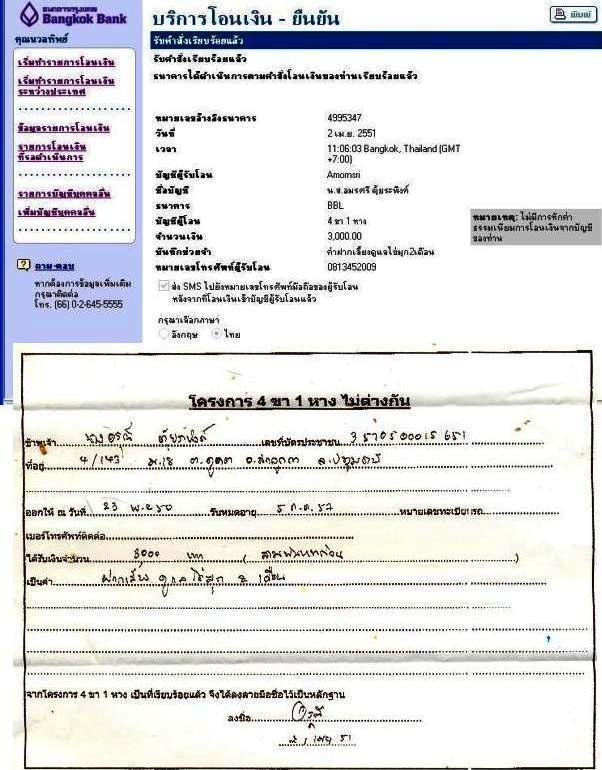 ธนาคารกรุงเทพ
Bangkok Bank
คุณนวลทิพย์
เริ่มทำรายการโอนเงิน
เริ่มทำรายการโอนเงิน
ระหว่างประเทศ
ข้อมูลรายการโอนเงิน
รายการโอนเงิน
ที่รอดำเนินการ
รายการบัญชีบุคคลอื่น
เพิ่มบัญชีบุคคลอื่น
ถาม-ตอบ
หากต้องการข้อมูลเพิ่มเติม
กรุณาติดต่อ
โทร. (66) 0-2-645-5555
บริการโอนเงิน - ยืนยัน
พิมพ์
รับคำสั่งเรียบร้อยแล้ว
รับคำสั่งเรียบร้อยแล้ว
ธนาคารได้ดำเนินการตามคำสั่งโอนเงินของท่านเรียบร้อยแล้ว
หมายเลขอ้างอิงธนาคาร 4995347
วันที่ 2 เม.ย. 2551
เวลา 11:06:03 Bangkok, Thailand (GMT
+7:00)
บัญชีผู้รับโอน Amornsri
ชื่อบัญชี น.ส.อมรศรี ตุ้ยระพิงค์
ธนาคาร BBL
บัญชีผู้โอน 4 ขา 1 หาง
จำนวนเงิน 3,000.00
บันทึกช่วยจำ ค่าฝากเลี้ยงดูแลไข่มุก2เดือน
หมายเลขโทรศัพท์ผู้รับโอน 0813452009
หมายเหตุ: ไม่มีการหักค่า
ธรรมเนียมการโอนเงินจากบัญชี
ของท่าน
ส่ง SMS ไปยังหมายเลขโทรศัพท์มือถือของผู้รับโอน
หลังจากที่โอนเงินเข้าบัญชีผู้รับโอนแล้ว
กรุณาเลือกภาษา
อังกฤษ ไทย
โครงการ 4 ขา 1 หาง ไม่ต่างกัน
ข้าพเจ้า เลขที่บัตรประชาชน 3 570500015 651
ที่อยู่ 4/143 ม.18 ต.คูคต อ.ลำลูกกา จ.ปทุมธานี
ออกให้ ณ วันที่ 23 พ.ย 50 วันหมดอายุ 5 ก.ค. 57 หมายเลขทะเบียนรถ
เบอร์โทรศัพท์ติดต่อ
ได้รับเงินจำนวน 3000 บาท ( สามพันบาทถ้วน )
เป็นค่า ฝากเลี้ยง ดูแล ไข่มุก 2 เดือน
จากโครงการ 4 ขา 1 หาง เป็นที่เรียบร้อยแล้ว จึงได้ลงลายมือชื่อไว้เป็นหลักฐาน
ลงชื่อ
2 เมย 51